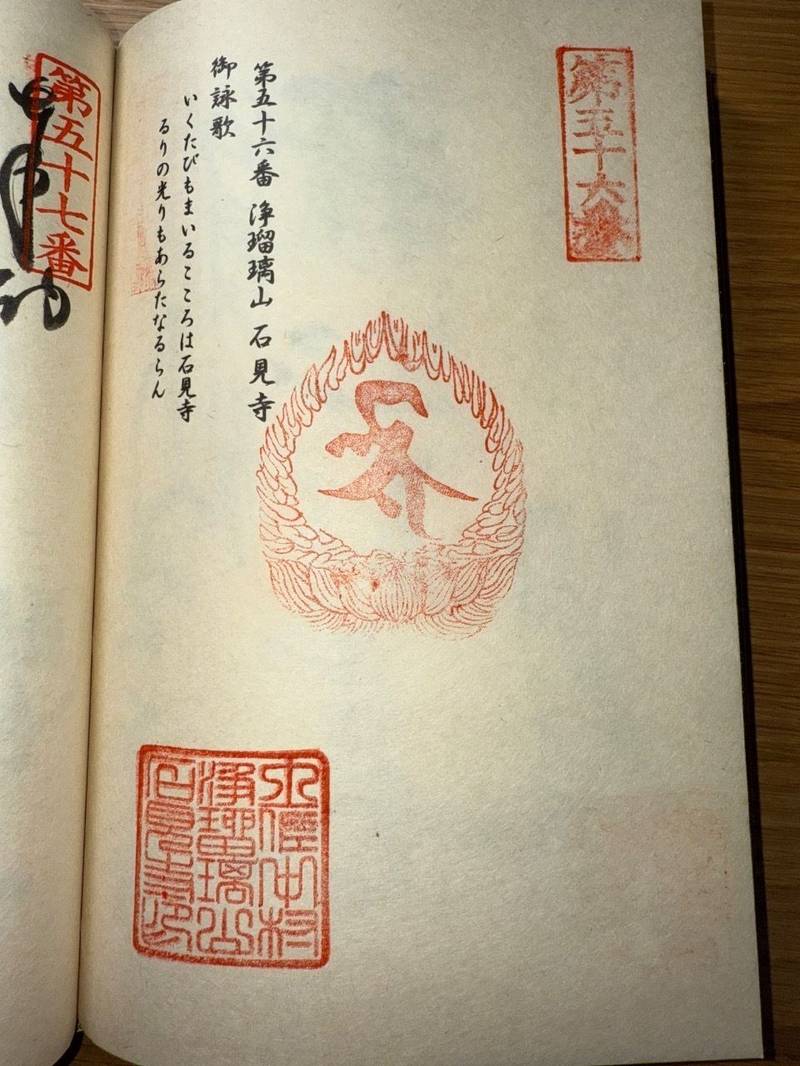 第五十六番
第五十六番 浄瑠璃山 石見寺
御詠歌
いくたびもまいるこころは石見寺
るりの光りもあらたなるらん
浄瑠璃山
石見寺印
第五十七番